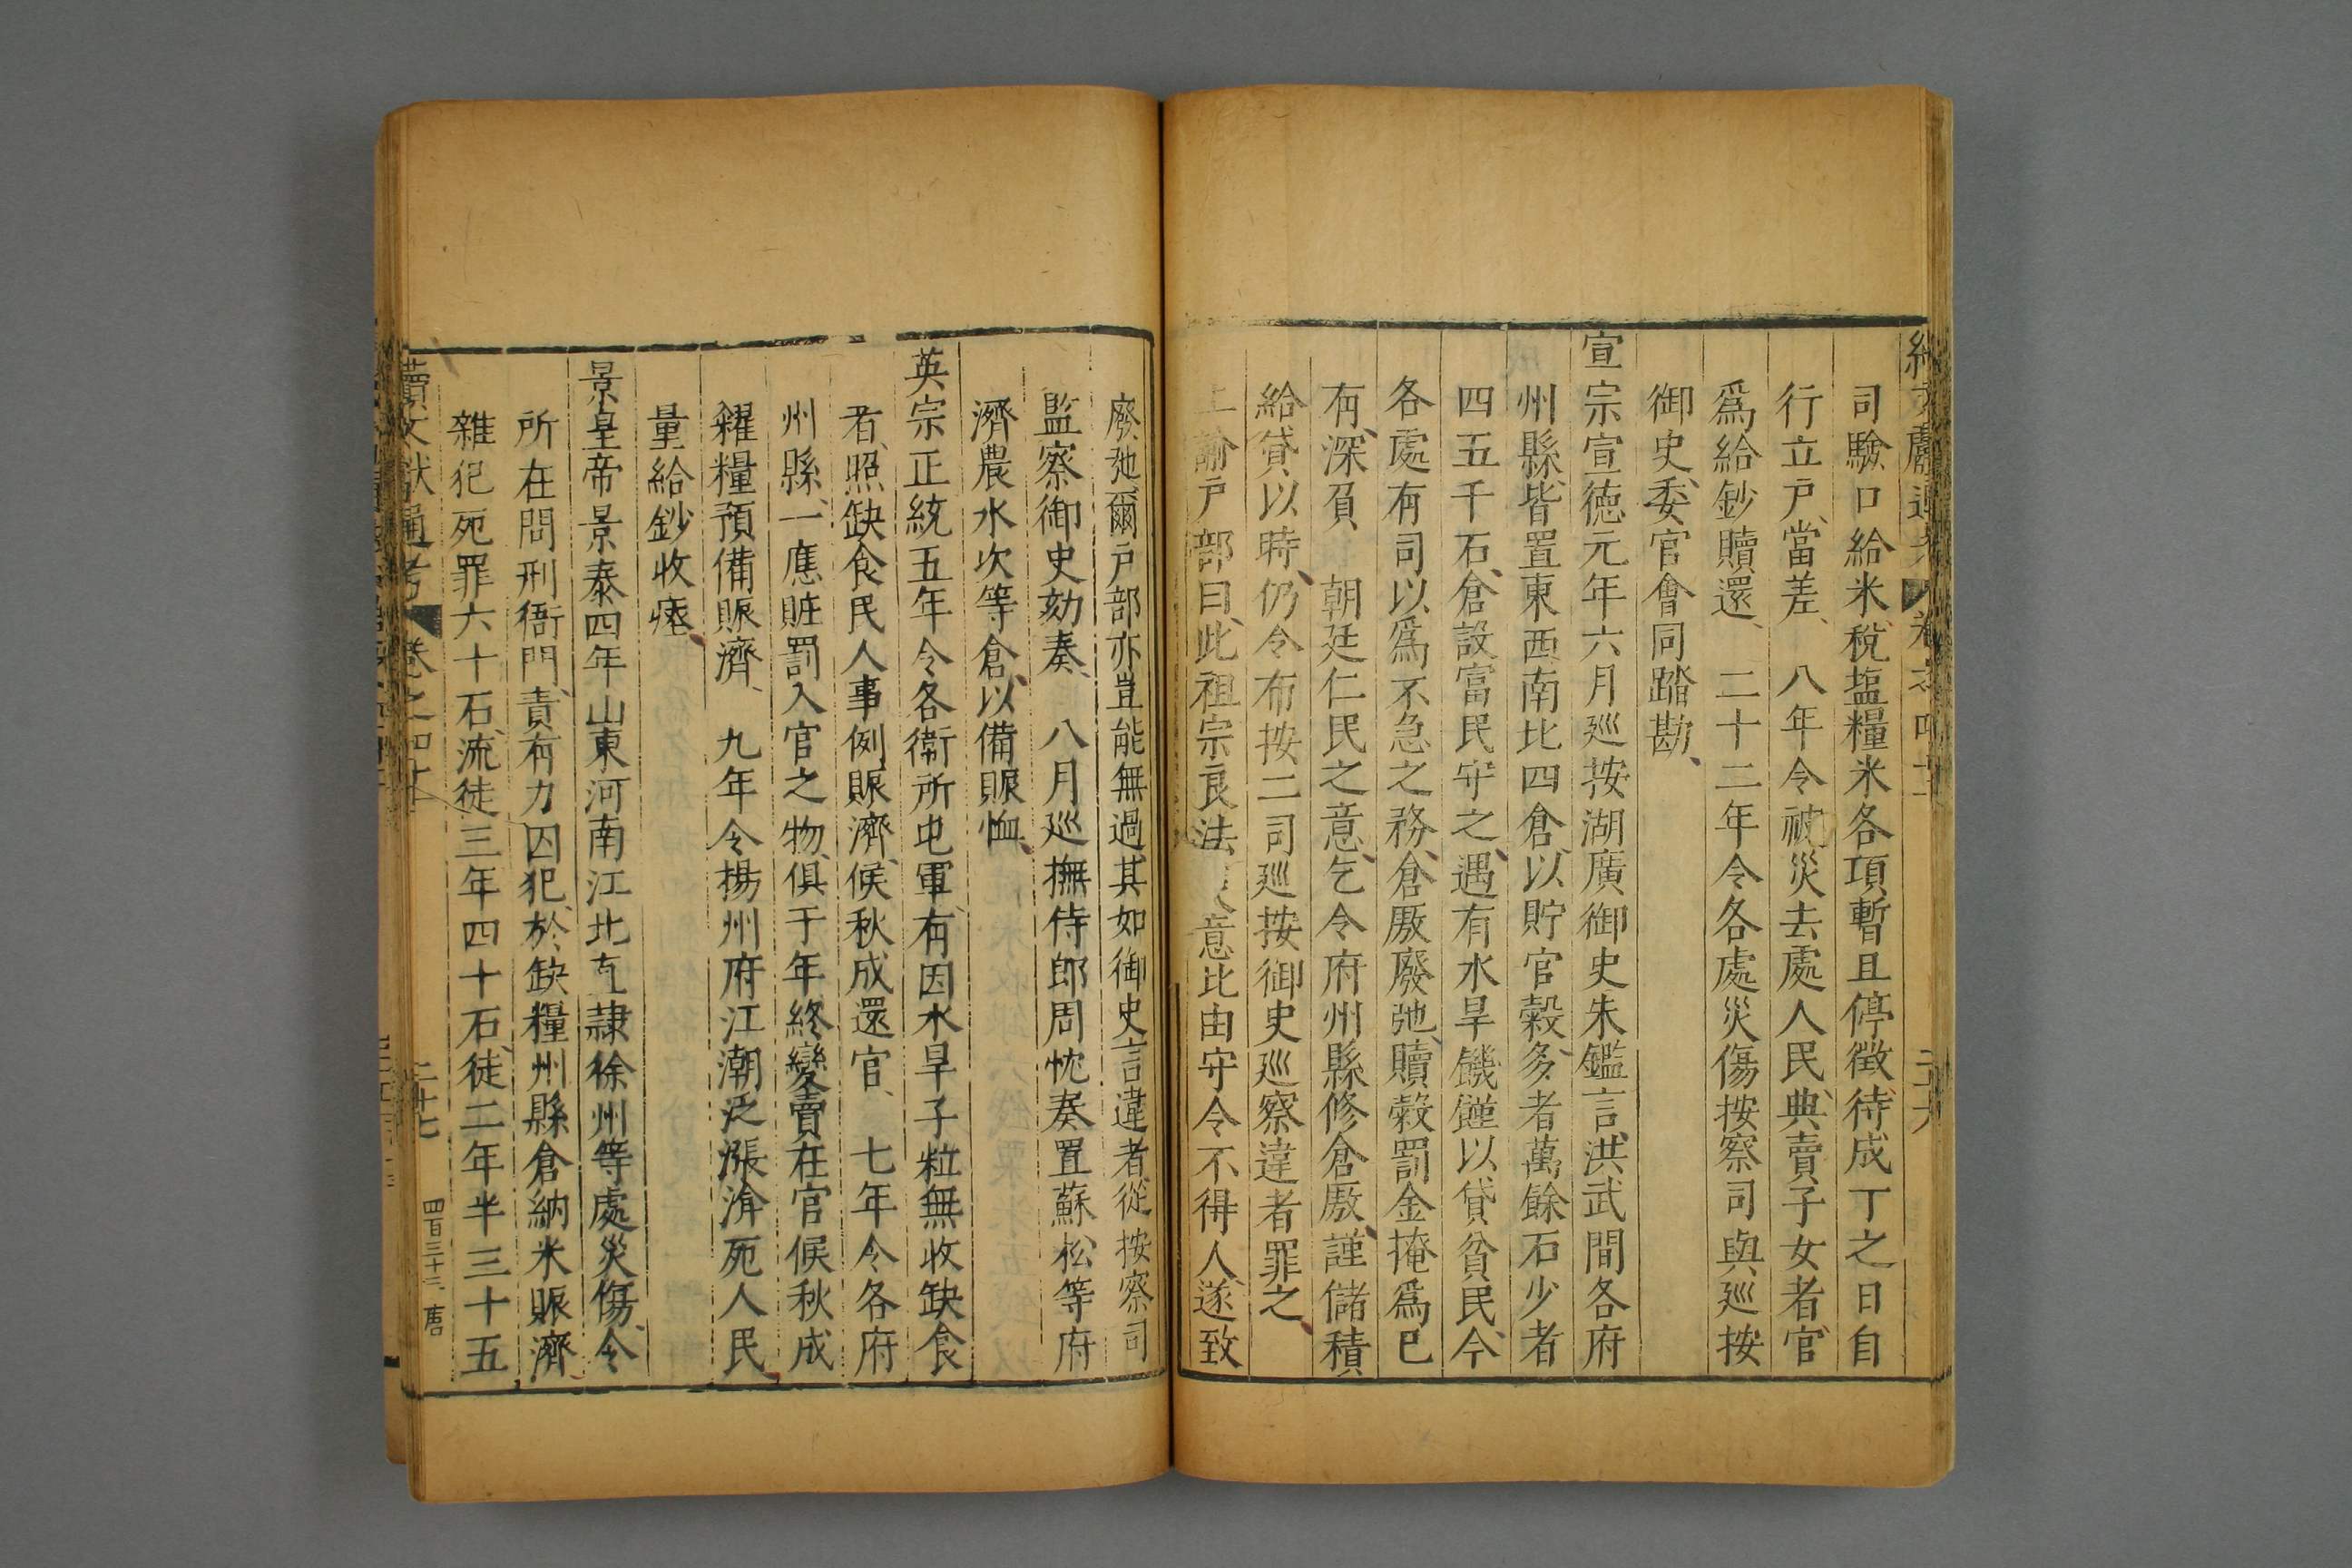 司驗口給米稅塩糧米各項暫且停徵待成丁之日自
行立戸當差 八年令被災去處人民典賣子女者官
爲給鈔贖還 二十二年令各處災傷按察司與廵按
御史委官會同踏勘
宣宗宣德元年六月廵按湖廣御史朱鑑言洪武間各府
州縣皆置東西南北四倉以貯官穀多者萬餘石少者
四五千石倉設富民守之遇有水旱饑饉以貸貧民今
各處有司以爲不急之務倉厫廢弛贖穀罰金掩爲已
有深負 朝廷仁民之意乞令府州縣修倉厫謹儲積
給貸以時仍令布按二司廵按御史廵察違者罪之
上諭戸部曰此祖宗良法 意比由守令不得人遂致
廢弛爾戸部亦豈能無過其如御史言違者從按察司
監察御史劾奏 八月廵撫侍郎周忱奏置蘇松等府
濟農水次等倉以備賑恤
英宗正統五年令各衛所屯軍有因水旱子粒無收缺食
者照缺食民人事例賑濟候秋成還官 七年令各府
州縣一應贓罰入官之物俱于年終變賣在官候秋成
糴糧預備賑濟 九年令揚州府江潮泛漲渰死人民
量給鈔收瘞
景皇帝景泰四年山東河南江北直隷徐州等處災傷令
所在問刑衙門責有力囚犯於缺糧州縣倉納米賑濟
雜犯死罪六十石流徒三年四十石徒二年半三十五
續文獻通考 卷之四十 二十七 四百三十三 唐